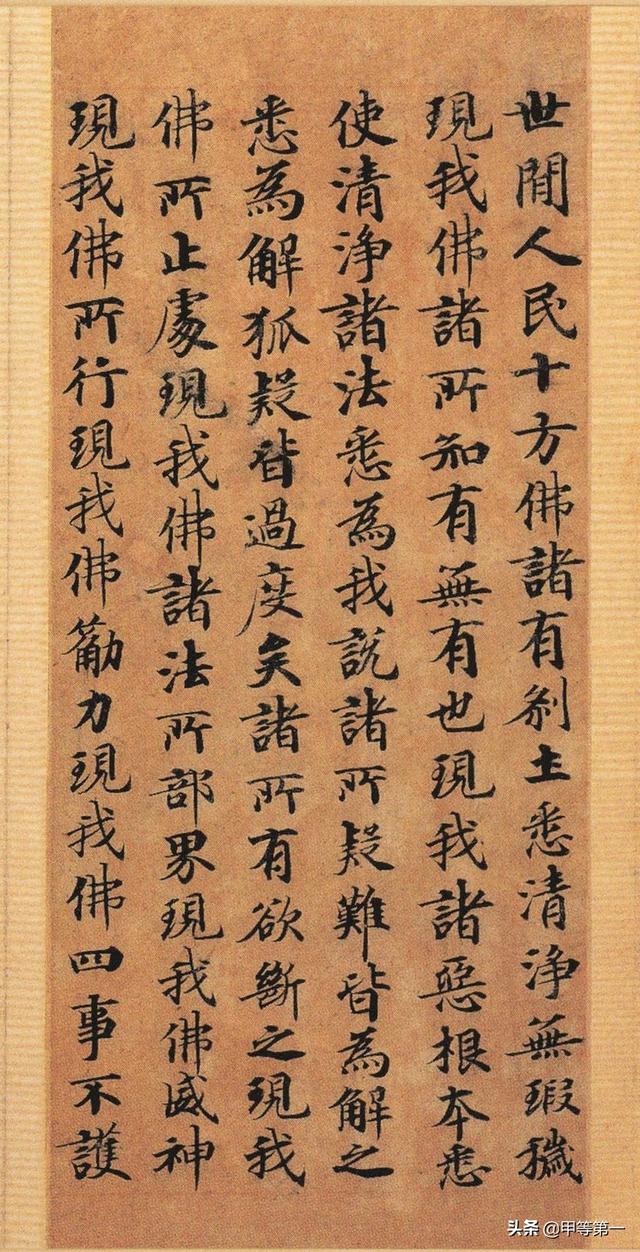 世間人民十方佛諸有剎土悉清淨無瑕穢
現我佛諸所知有無有世現我諸惡根本悉
使清淨諸法悉為我説諸所疑難皆為解之
悉為解狐疑皆過度矣諸所有欲斷之現我
佛所止處現我佛諸法所部界現我佛威神
現我佛所行現我佛勸力現我佛四事不護
头条 @甲等第一